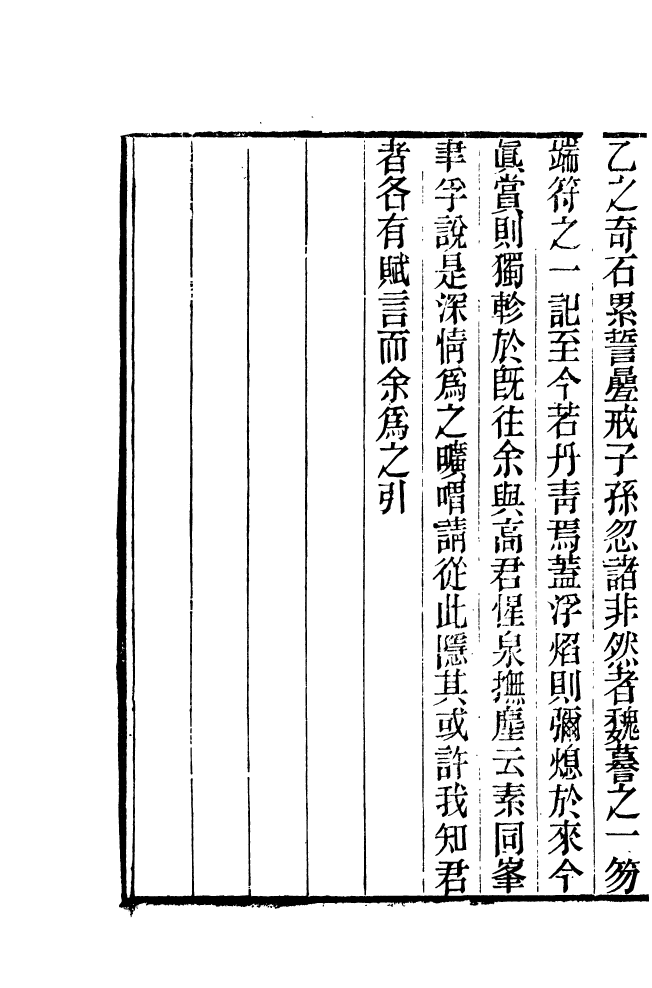 乙之奇石累誓疊戒子孫忽諸非然者魏謩之一笏
端符之一記至今若丹青焉蓋浮焰則彌熄於來今
眞賞則獨軫於旣往余與高君惺泉撫塵云素同峯
聿孚說是深情爲之曠喟請從此隱其或許我知君
者各有賦言而余爲之引